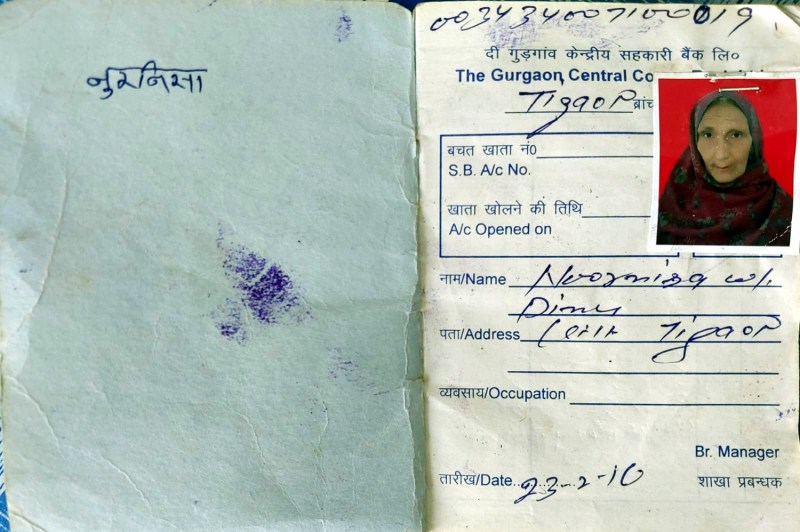 नुरनिसा
003434007100019
दी गुड़गांव केन्द्रीय सहकारी बैंक लि०
The Gurgaon Central Co
Tigaon ब्रांच
बचत खाता नं०
S.B. A/c No.
खाता खोलने की तिथि
A/c Opened on
नाम/Name Noornisa w/.
Dinu
पता/Address Tigaon
व्यवसाय/Occupation
Br. Manager
तारीख/Date 23-2-10 शाखा प्रबन्धक